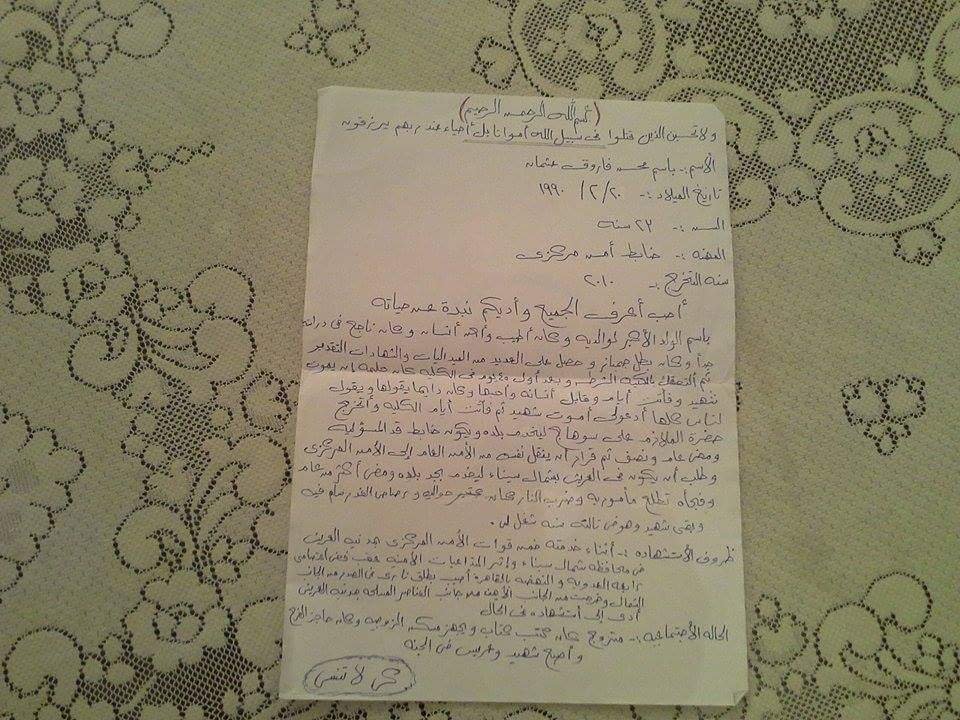 (بسم الله الرحمن الرحيم)
ولا تحسبن الذين قتلوا فى سبيل الله أمواتا بل أحياء عند ربهم يرزقون
الأسم :- باسم محسن فاروق عثمان
تاريخ الميلاد :- ٢٠ / ٢ / ١٩٩٠
السن :- ٢٣ سنه
المهنه :- ضابط أمن مركزى
سنه التخرج :- ٢٠١٠
أحب أعرف الجميع وأديكم نبذة عن حياته
باسم الولد الأكبر لوالديه وكان أطيب وأحن أنسان وكان ناجح فى دراسته
جداً وكان بطل جمباز وحصل على العديد من الميداليات والشهادات التقدير
ثم ألتحق بكلية الشرطه وبعد أولى ٤٥ يوم فى الكليه كان حلمه إن يموت
شهيد وفاتت أيام وقابل أنسانه وأحبها وكان دايما يقولها ويقول
لناس كلها أدعولى أموت شهيد ثم فاتت أيام الكليه وأتخرج
حضرة الملازم على سوهاج ليخدم بلده ويكون ضابط قد المسؤليه
ومضى عام ونصف ثم قرار أن ينقل نفسه من الأمن العام إلى الأمن المركزى
وطلب أن يكون فى العريش بشمال سيناء ليخدم بجد بلده ومضى أكثر من عام
وفجأه تطلع مأموريه وضرب النار كان حواليه ورصاص الغدر فيه
وبقى شهيد وهو فى تالت سنه شغل ليه
ظروف الأستشهاده :- أثناء خدمته ضمن قوات الأمن المركزى بمدنيه العريش
فى محافظه شمال سيناء وإثر التداعيات الأمنه عقب فض إعتصامى
رابعه العدويه و النهضه بالقاهره أصيب بطلق نارى فى الصدر من الجانب
الشمال وخرجت من الجانب الأيمن من جانب العناصر المسلحه بمدينه العريش
أدى إلى أستشهاده فى الحال
الحاله الأجتماعيه :- متزوج كان كتب كتاب وبيجهز مسكن الزوجيه وكان حاجز الفرح
وأصبح شهيد وعريس فى الجنه
حتى لا ننسى